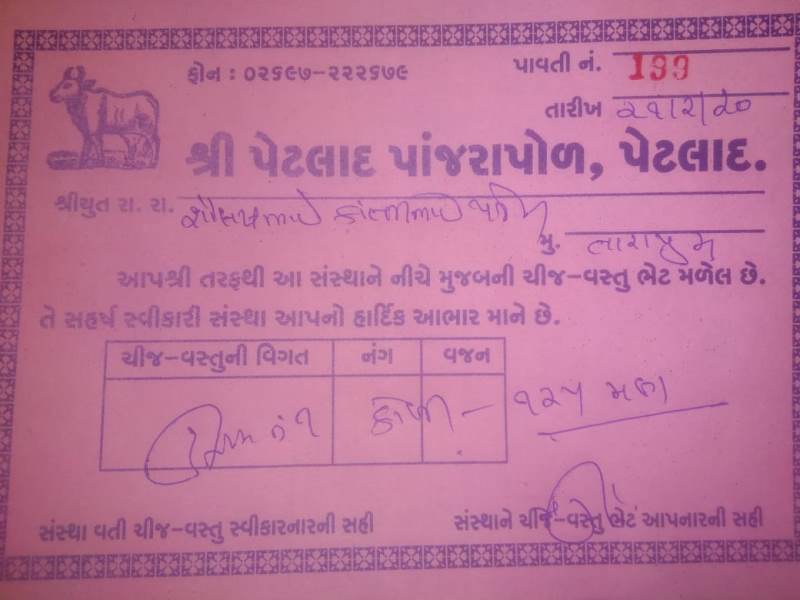 ફોન : ૦૨૬૯૭-૨૨૨૬૭૯
પાવતી નં. 199
તારીખ ૨૧/૨/૨૦
શ્રી પેટલાદ પાંજરાપોળ, પેટલાદ.
શ્રીયુત રા. રા. શૈલેષભાઈ કાંતીભાઈ પટેલ
મુ. તારાપુર
આપશ્રી તરફથી આ સંસ્થાને નીચે મુજબની ચીજ-વસ્તુ ભેટ મળેલ છે.
તે સહર્ષ સ્વીકારી સંસ્થા આપનો હાર્દિક આભાર માને છે.
ચીજ-વસ્તુની વિગત નંગ વજન
૧૨૫ મણ
સંસ્થા વતી ચીજ-વસ્તુ સ્વીકારનારની સહી
સંસ્થાને ચીજ-વસ્તુ ભેટ આપનારની સહી